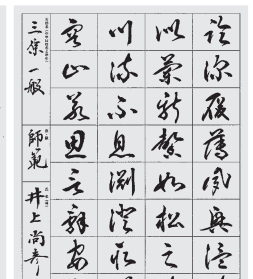 臨深履薄夙興温
似蘭斯馨如松之
川流不息淵澄取
容止若思言辞安
一般
師範
井上尚